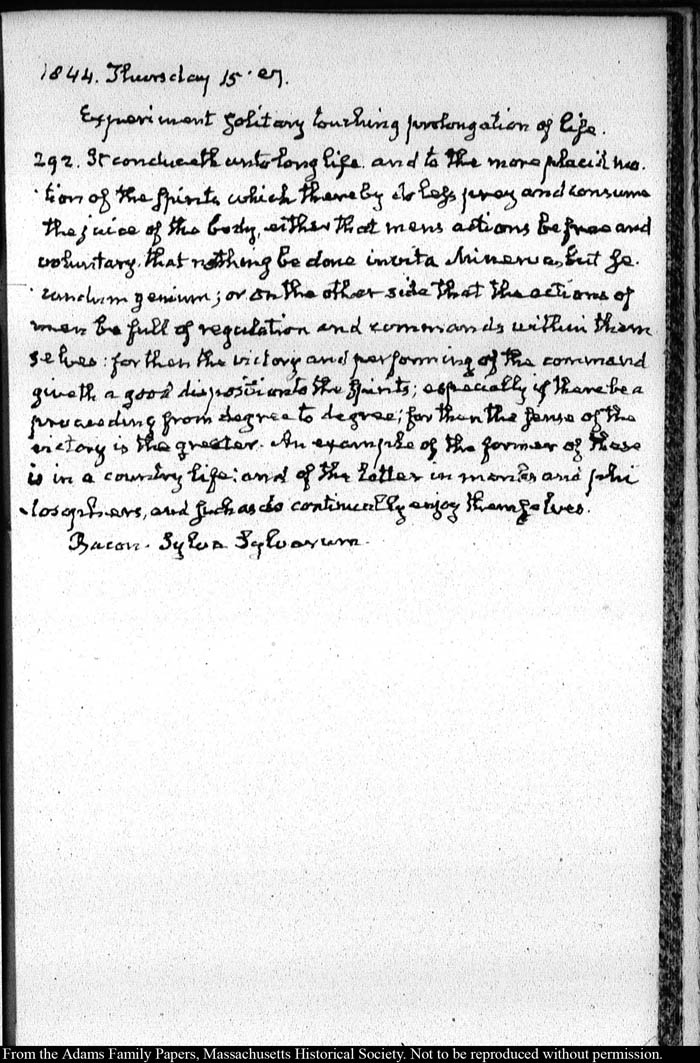 1844. Thursday 15.
Experiment solitary touching prolongation of life.
292. It conduceth unto long life and to the more placid mo.
tion of the spirits which thereby do less prey and consume
the juice of the body, either that mens actions be free and
voluntary, that nothing be done invita Minerva, but se.
cundum genium; or on the other side that the actions of
men be full of regulation and commands within them
selves: for then the victory and performing of the command
giveth a good disposition to the spirits; especially if there be a
proceeding from degree to degree; for then the sense of the
victory is the greater. An example of the former of these
is in a country life: and of the latter in monks and phi
losophers, and such as do continually enjoy themselves.
Bacon. Sylva Sylvarum.
From the Adams Family Papers, Massachusetts Historical Society. Not to be reproduced without permission.